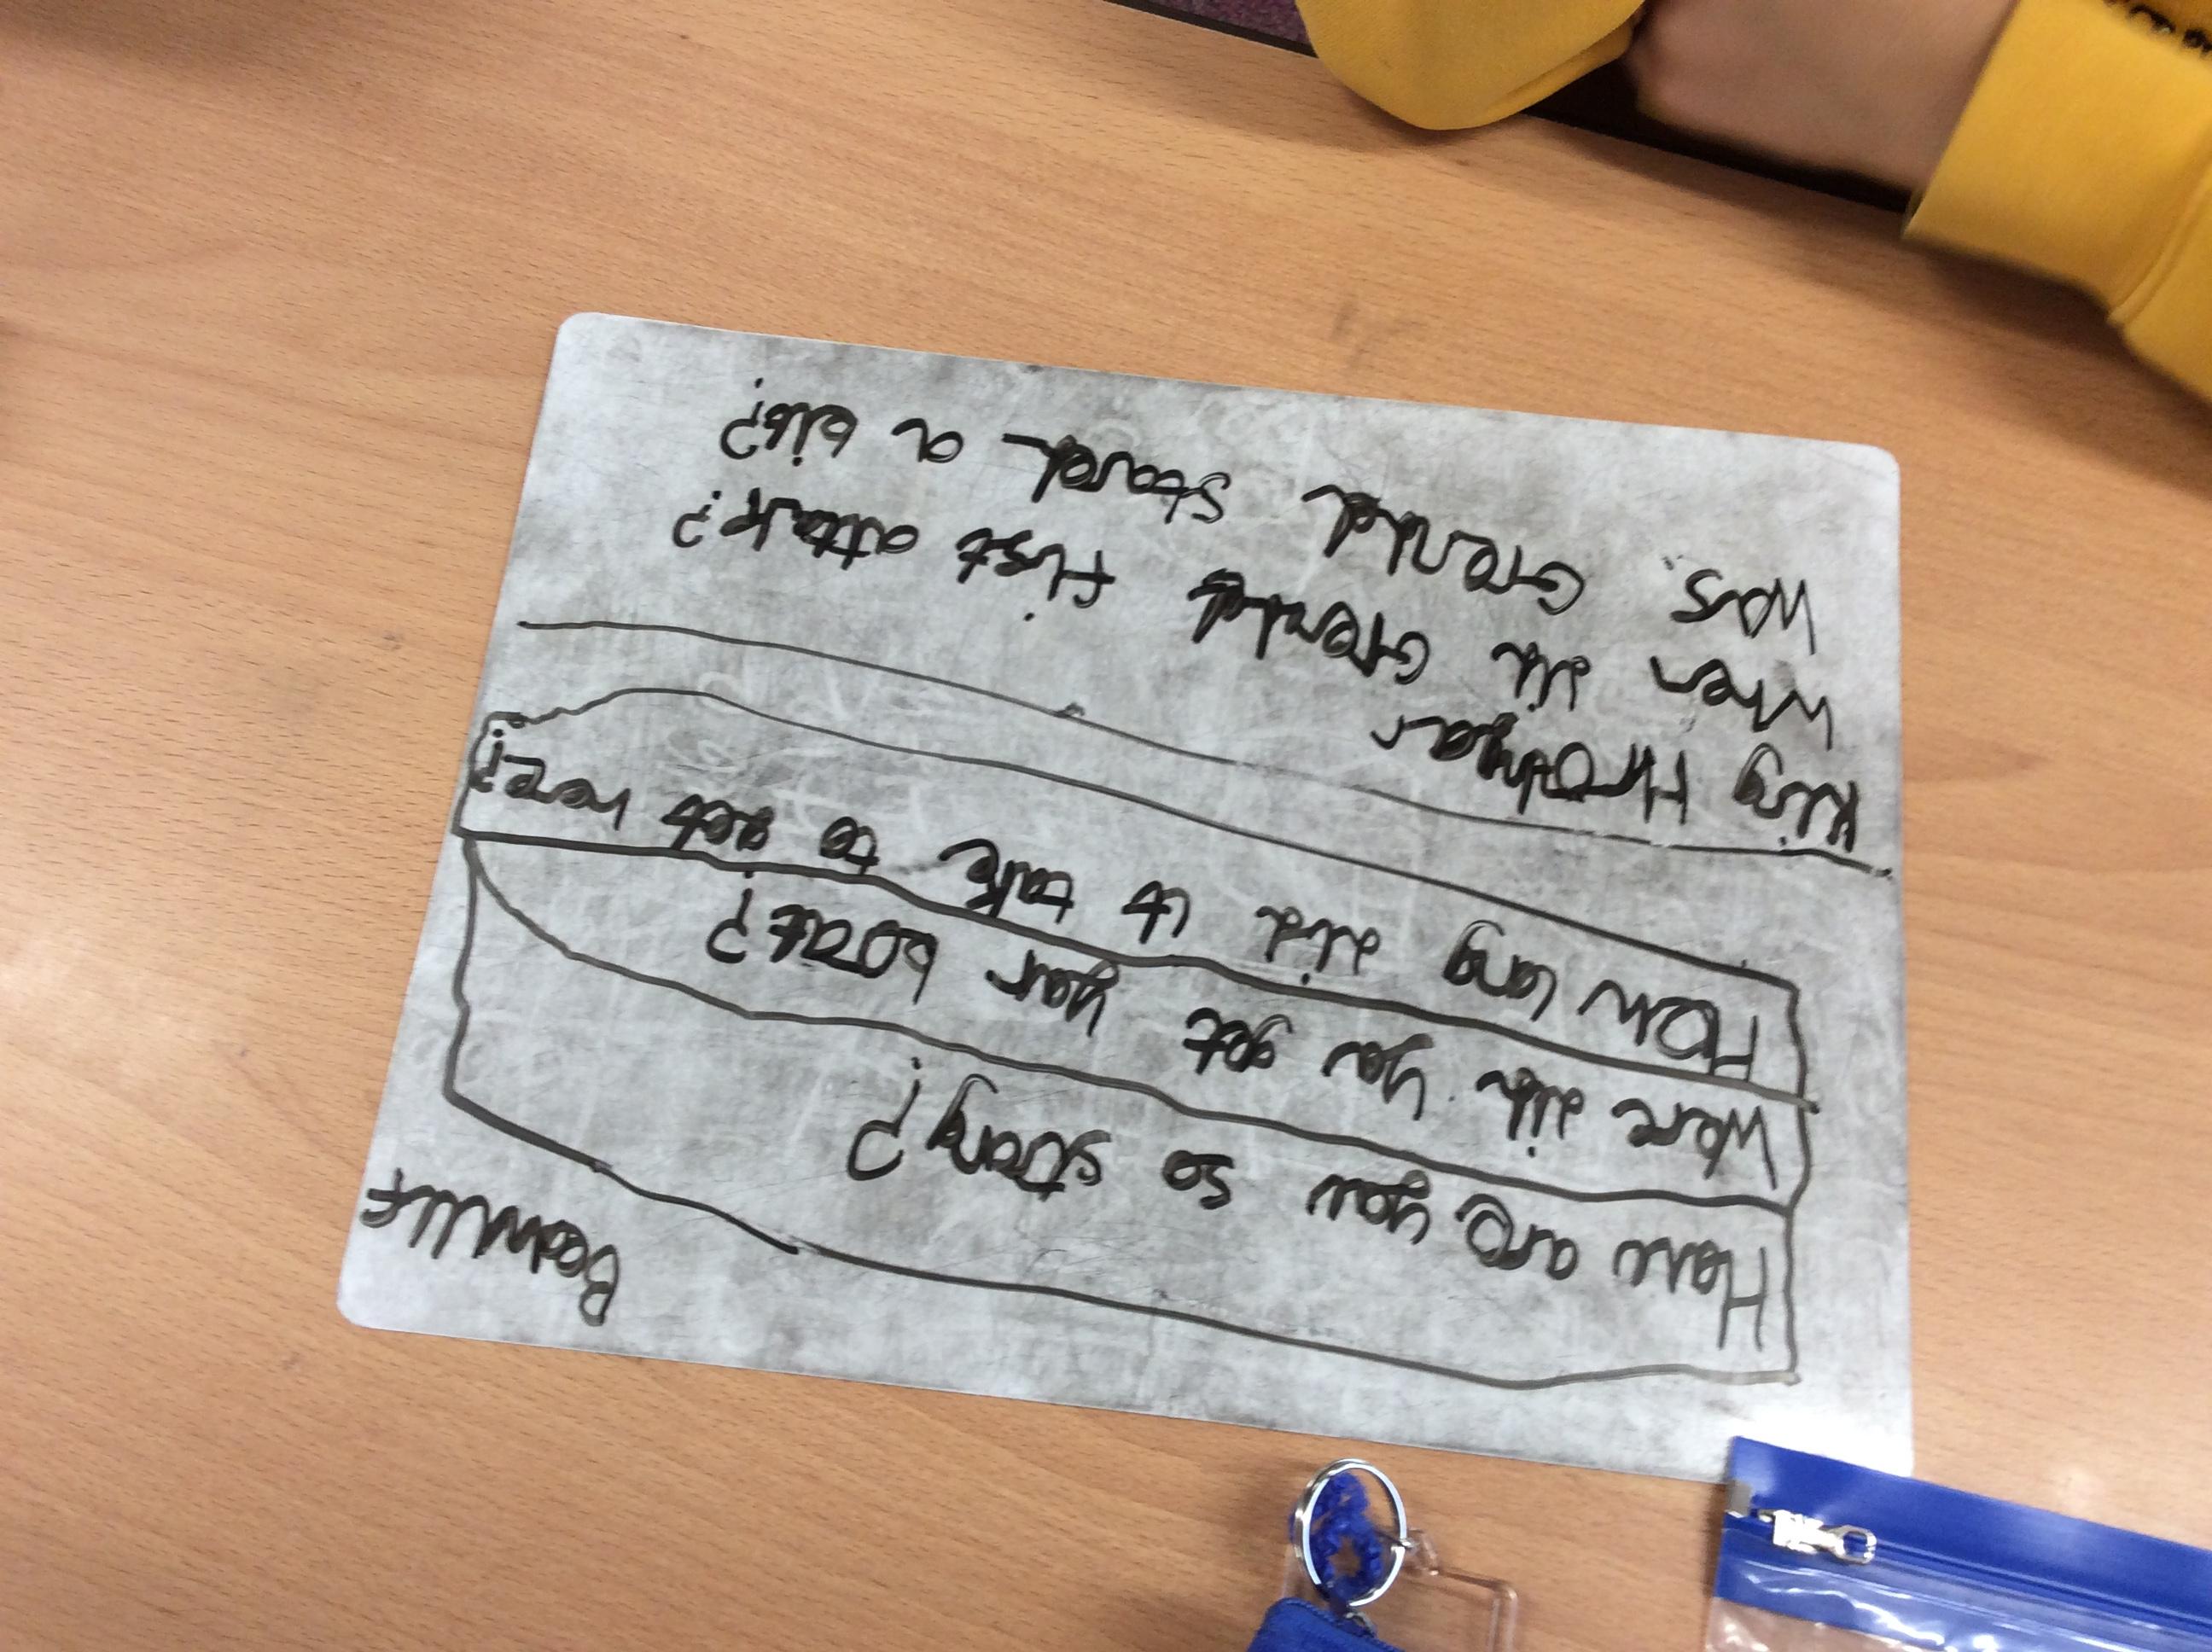 Beowulf
How are you so strong?
Were did you get your boat?
How long did it take to get here?
King Hrothgar
When did Grendel first attak?
Was Grendel scared a bit?